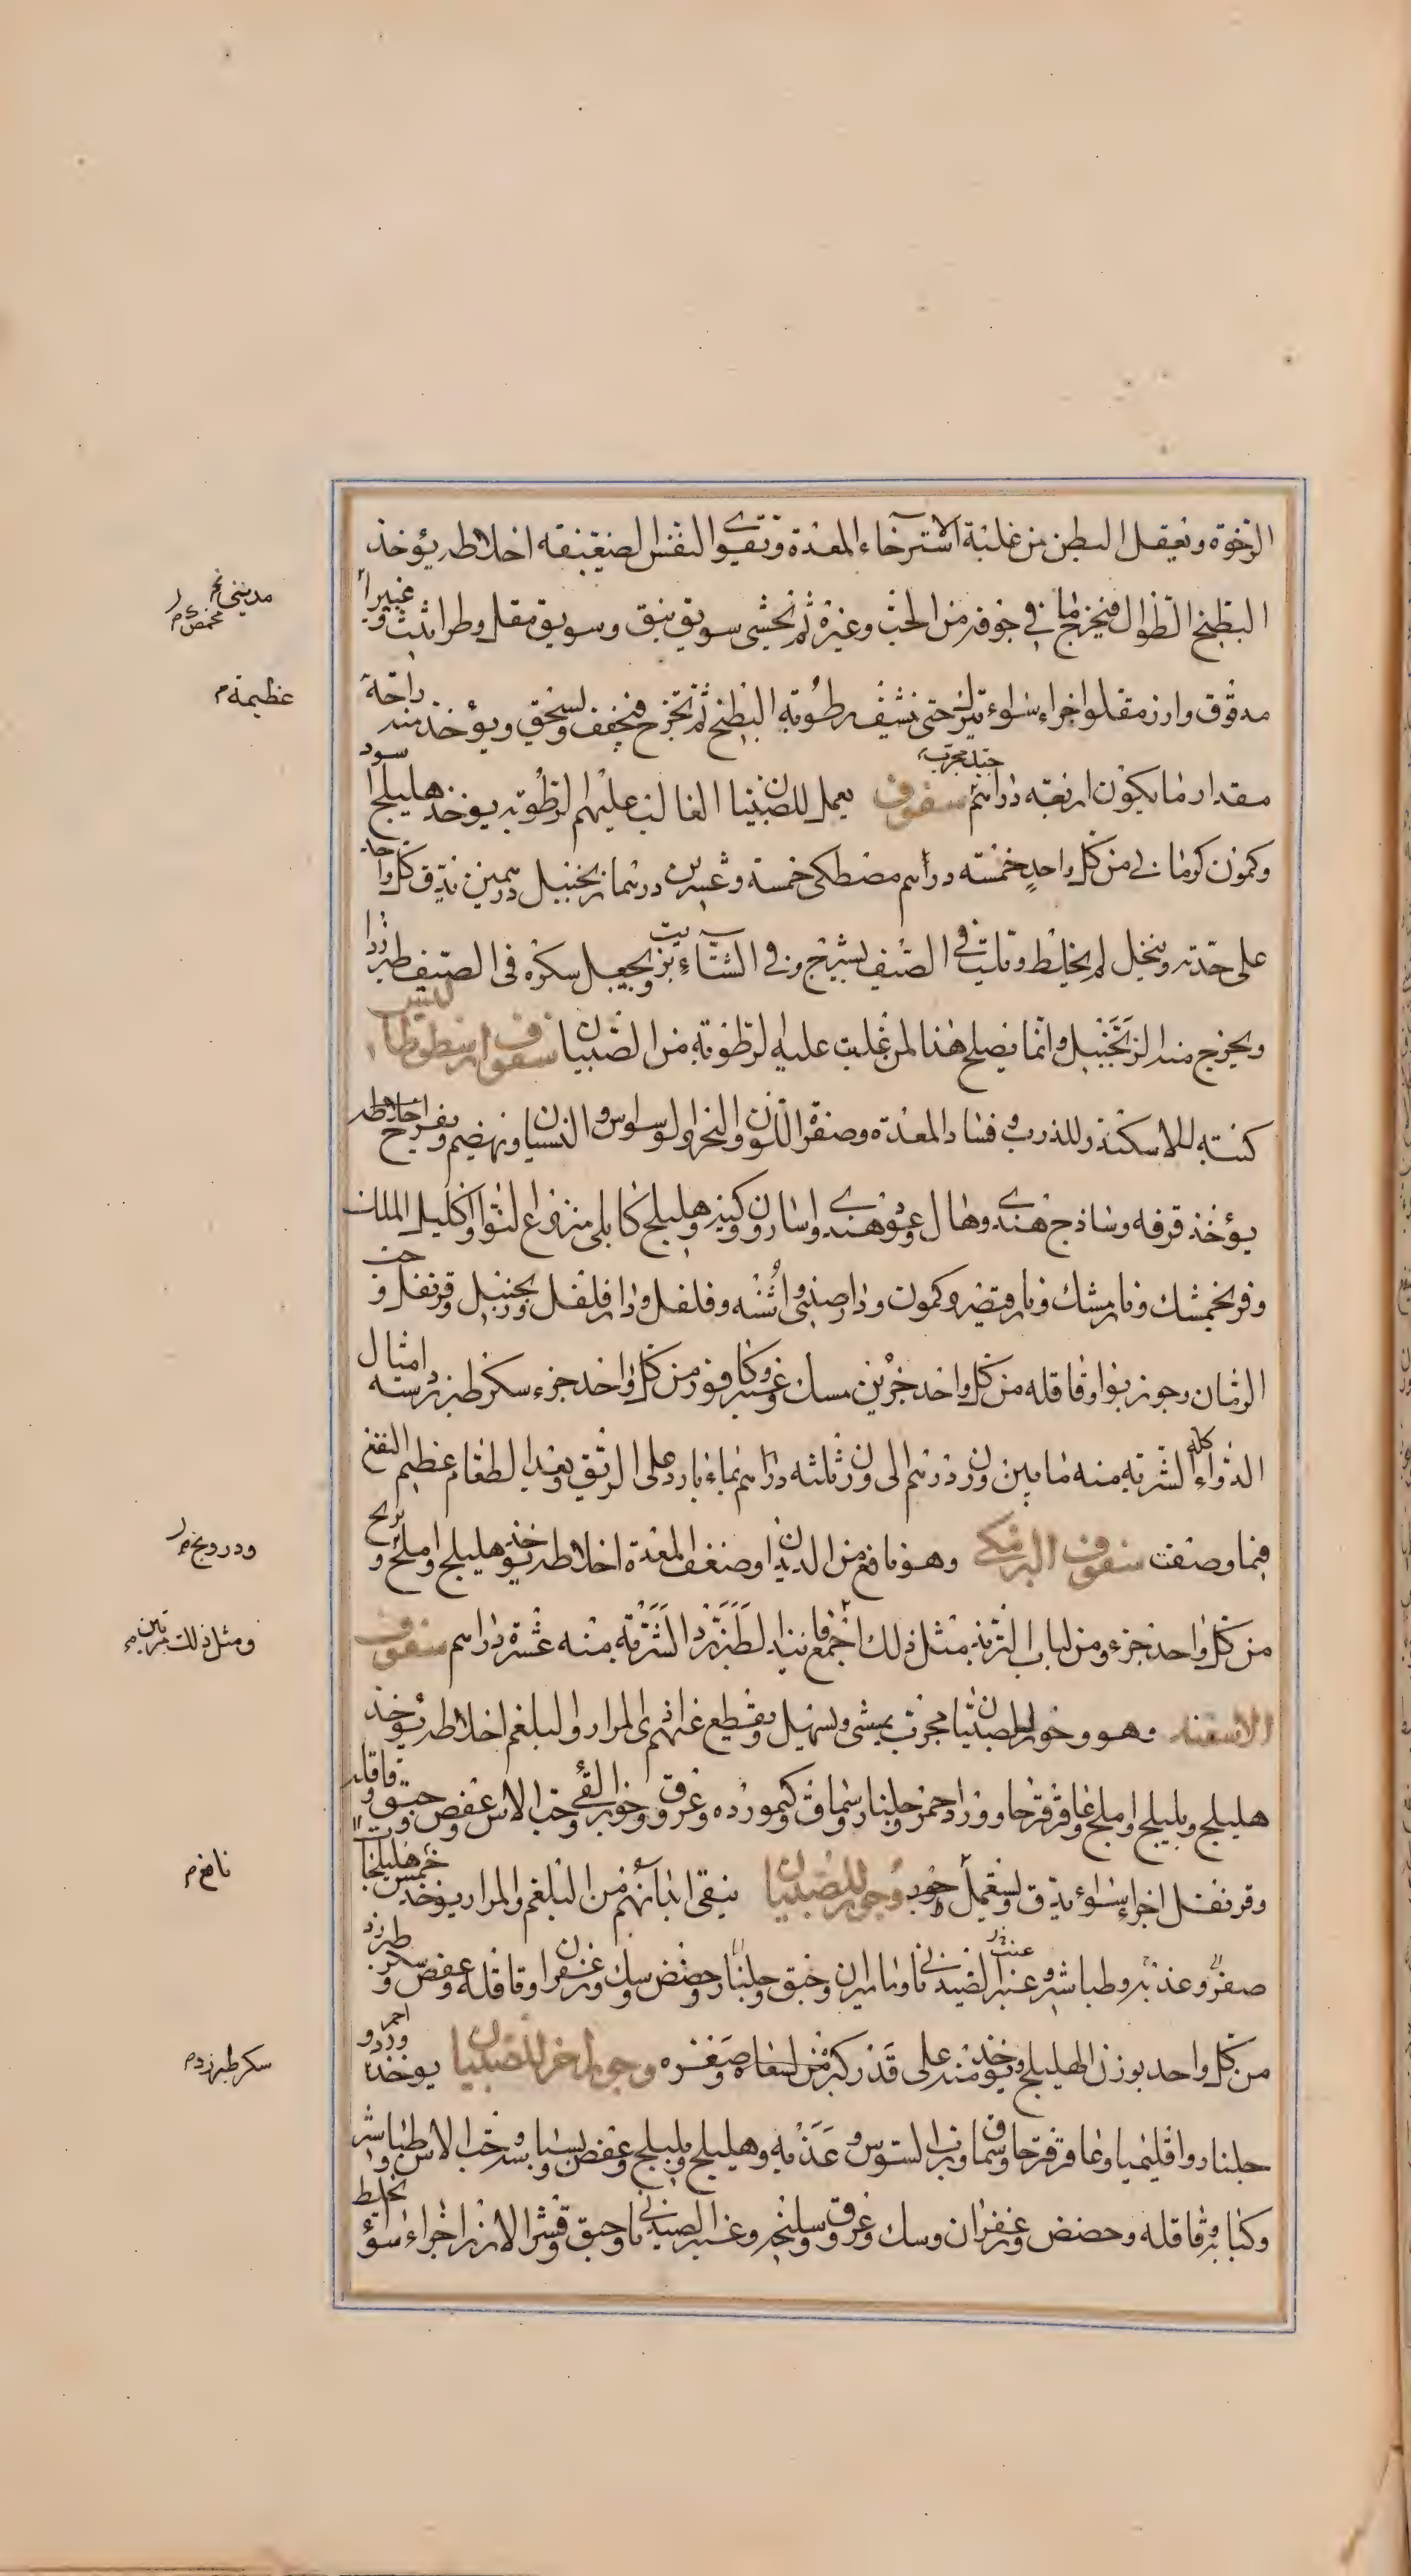 الرخوة وتعقل البطن من غلبة الاسترخاء المعدة وتقوى النفس الضعيفة اخلاطه يؤخذ
البطيخ الطوال فيخرج ما في جوفه من الحب وغيره ثم يحشى سويق نبق وسويق مقل وطراثيث وغبيرا
مدقوق وارز مقلو اجزاء سواء يترك حتى ينشف رطوبة البطيخ ثم تخرج فيجفف ويسحق ويؤخذ منه راحة
مقدار ما يكون اربعة دراهم سفوف جيد مجرب يعمل للصبيان الغالب عليهم الرطوبة يوخذ هليلج اسود
وكمون كرماني من كل واحد خمسة دراهم مصطكى خمسة وعشرين درهما زنجبيل درهمين يدق كل واحد
على حدته وينخل ثم يخلط ويلت في الصيف بشيرج وفي الشتاء بزيت ويجعل سكره في الصيف طبرزدا
ويخرج منه الزنجبيل وانما يصلح هذا لمن غلبت عليه الرطوبة من الصبيان سفوف ارسطوطاليس
كتبه للاسكندر للذرب وفساد المعدة وصفرة اللون والبخر والوسواس والنسيان ويهضم ويفرح اخلاطه
يؤخذ قرفه وساذج هندى وهال وعود هندى واسارون وكبر وهليلج كابلى منزوع النوا واكليل الملك
وفرنجمشك ونارمشك ونارقيصر وكمون ودارصينى واشنه وفلفل ودارفلفل وزنجبيل وقرنفل وحب
الرمان وجوزبوا وقاقله من كل واحد جزين مسك وعنبر وكافور من كل واحد جزء سكر طبرزد ستة امثال
الدواء كله الشربه منه ما بين وزن درهم الى وزن ثلثه دراهم بماء بارد على الريق وبعد الطعام عظيم النفع
فيما وصفت سفوف البرمكى وهو نافع من الديدان وضعف المعدة اخلاطه يؤخذ هليلج واملج وبرنج
من كل واحد جزء ومن لباب التربذ مثل ذلك اجمع فانيذ الطبرزد الشربة منه عشرة دراهم سفوف
الاسفند وهو وجور للصبيان مجرب يمشى ويسهل ويقطع عنهم المرار والبلغم اخلاطه يؤخذ
هليلج وبليلج واملج وعاقرقرحا وورد احمر وجلنار وسماق وكيموزده وعروق وجوز القى وحب الاس وعفص وحبق وقاقله
وقرنفل اجزاء سواء يدق ويستعمل وجور وجور للصبيان ينقى ابدانهم من البلغم والمرار يوخذ خمس هليلجات
صفر وعذبه وطباشير وعنبر الصيدنانى وماميران وحبق وجلنار وحضض وسك وزعفران وقاقله وعفص وسكر طبرزد
من كل واحد بوزن الهليلج ويؤخذ منه على قدر كبر من يسقاه وصغره وجور اخر للصبيان يوخذ ورد احمر
جلنار واقليميا وعاقرقرحا وسماق ورب السوس وعذبه وهليلج وبليلج وعفص وبسباسه وحب الاس وطباشير
وكبابه وقاقله وحضض وزعفران وسك وعروق وسليخه وعنبر الصيدنانى وحبق وقشر الارز اجزاء سوا يخلط
عظيمة م
ودرونج
ومثل ذلك مرتين
نافع م
سكر طبرزد م